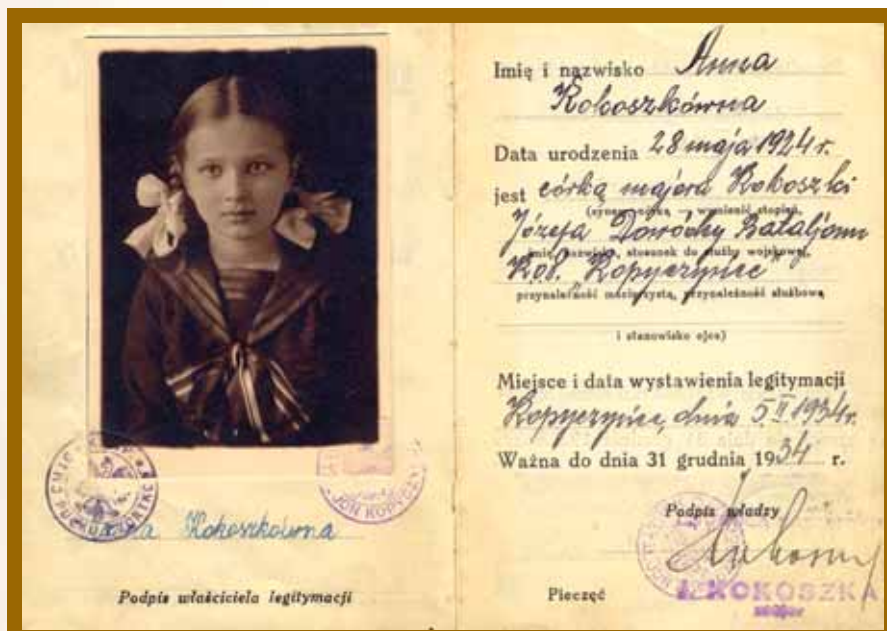 Anna Kokoszkówna
Podpis właściciela legitymacji
Imię i nazwisko Anna
Kokoszkówna
Data urodzenia 28 maja 1924 r.
jest córką majora Kokoszki
Józefa Dowódcy Bataljonu
imię, nazwisko, stosunek do służby wojskowej,
K.O.P. "Kopyczyńce"
przynależność macierzysta, przynależność służbowa
i stanowisko ojca)
Miejsce i data wystawienia legitymacji
Kopyczyńce, dnia 5.II.1934 r.
Ważna do dnia 31 grudnia 1934 r.
Podpis władzy
Pieczęć J. KOKOSZKA
major